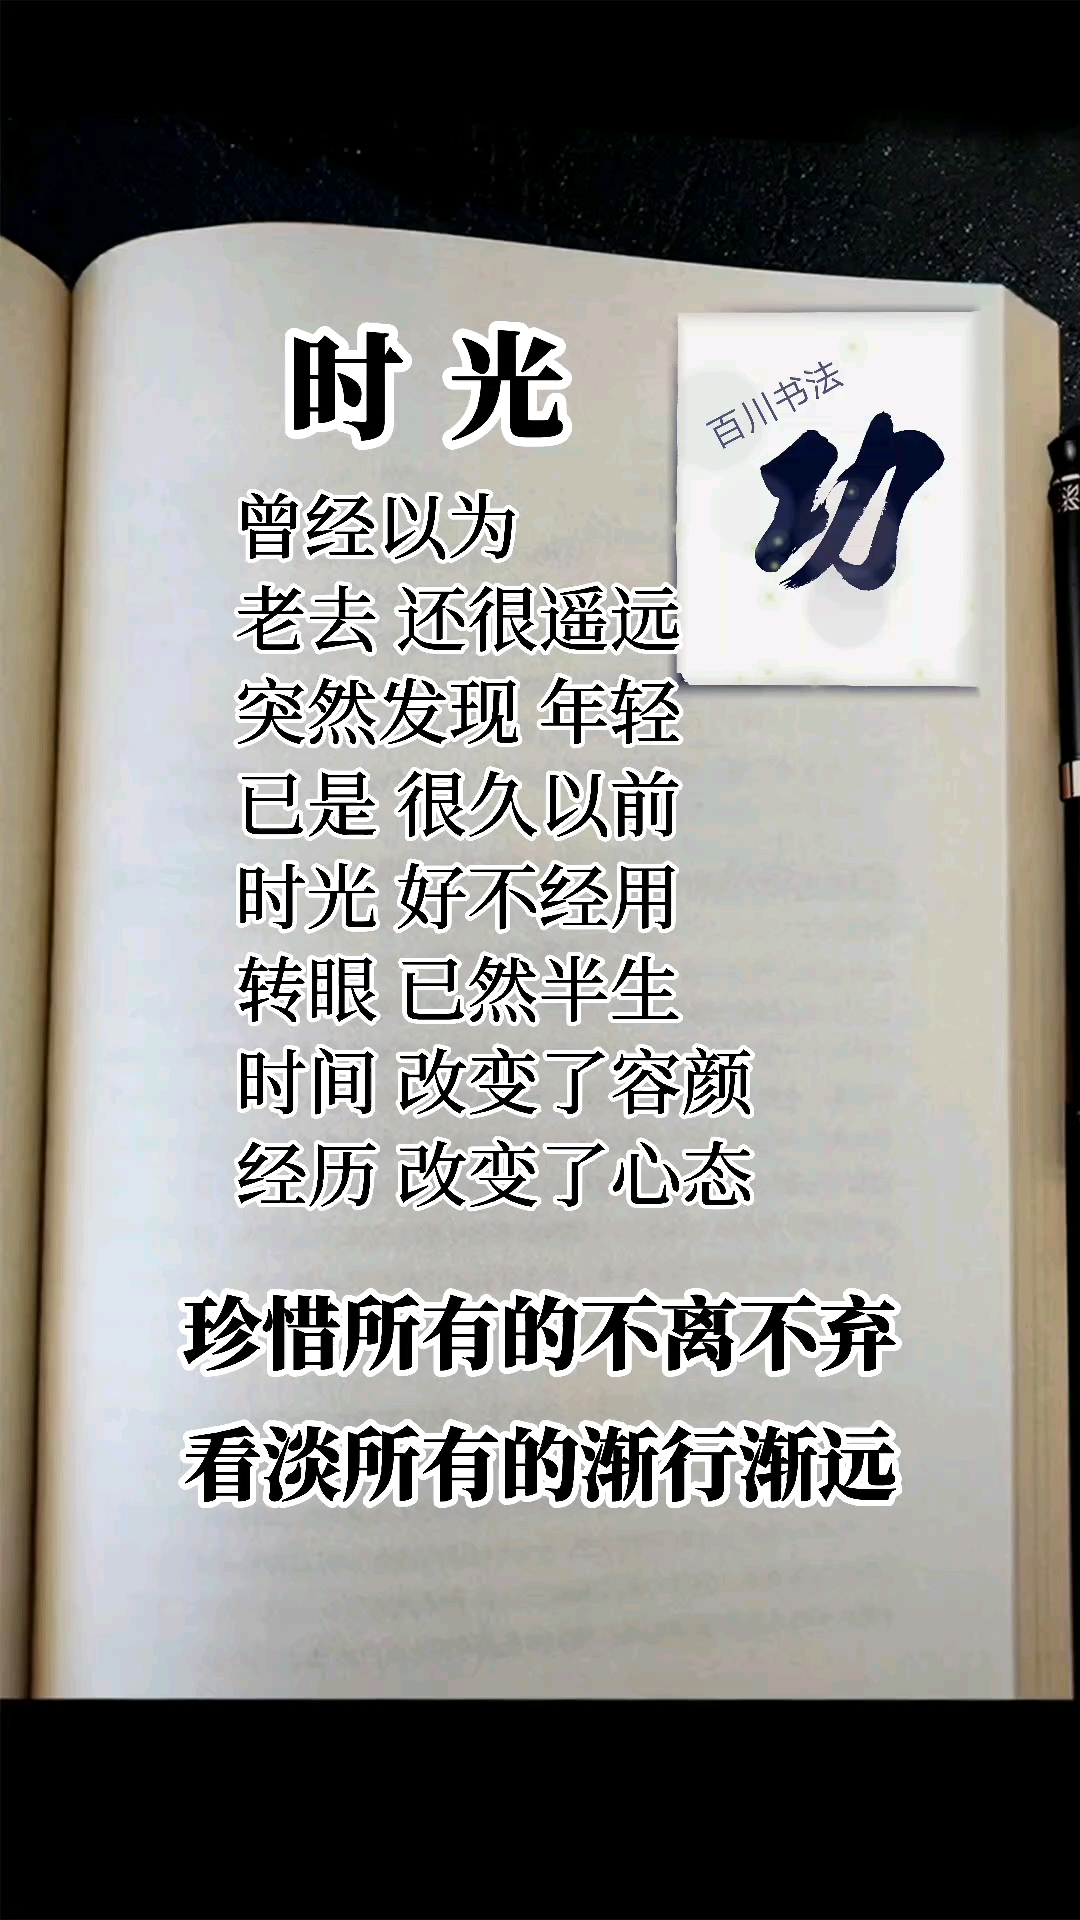 时光
百川书法
功
曾经以为
老去 还很遥远
突然发现 年轻
已是 很久以前
时光 好不经用
转眼 已然半生
时间 改变了容颜
经历 改变了心态
珍惜所有的不离不弃
看淡所有的渐行渐远